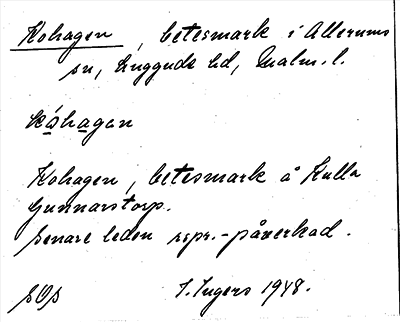 Kohagen, betesmark i Allerums
sn, Luggude hd, Malm. l.
kóhagan
Kohagen, betesmark å Kulla
Gunnarstorp.
Senare leden rspr.-påverkad.
I. Ingers 1948.